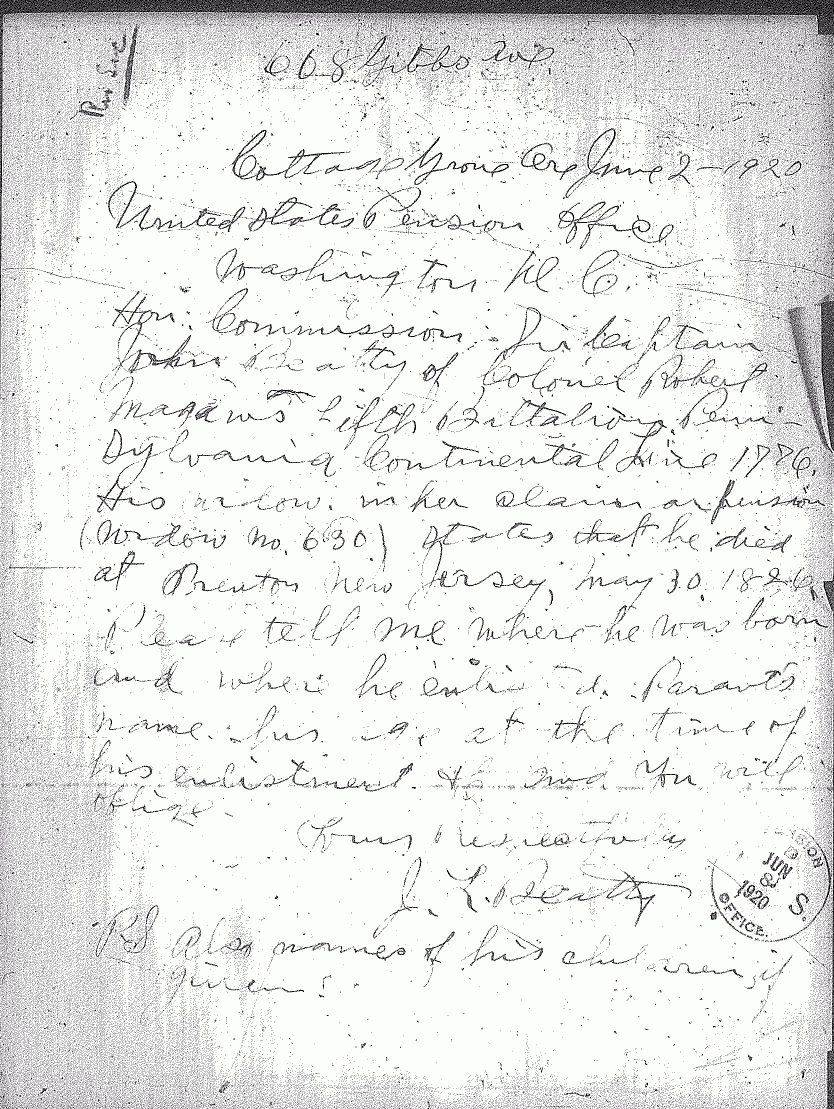 Rev Svc
608 Gibbs Ave.
Cottage Grove Ore June 2 - 1920
United States Pension Office
Washington D. C.
Hon: Commission: Sir Captain
John Beatty of Colonel Robert
Magaws Fifth Battalion Penn-
Sylvania Continental Line 1776.
His widow. in her claim or pension
(Widow no. 630) States that he died
at Trenton New Jersey, May 30 1826.
Please tell me where he was born
and where he enlisted. Parants
name. his age at the time of
his enlistment. and You will
oblige.
Yours respectfully
J. L. Beatty
PS Also names of his children, if
given.
PENSION
JUN
8
1920
S.
OFFICE.